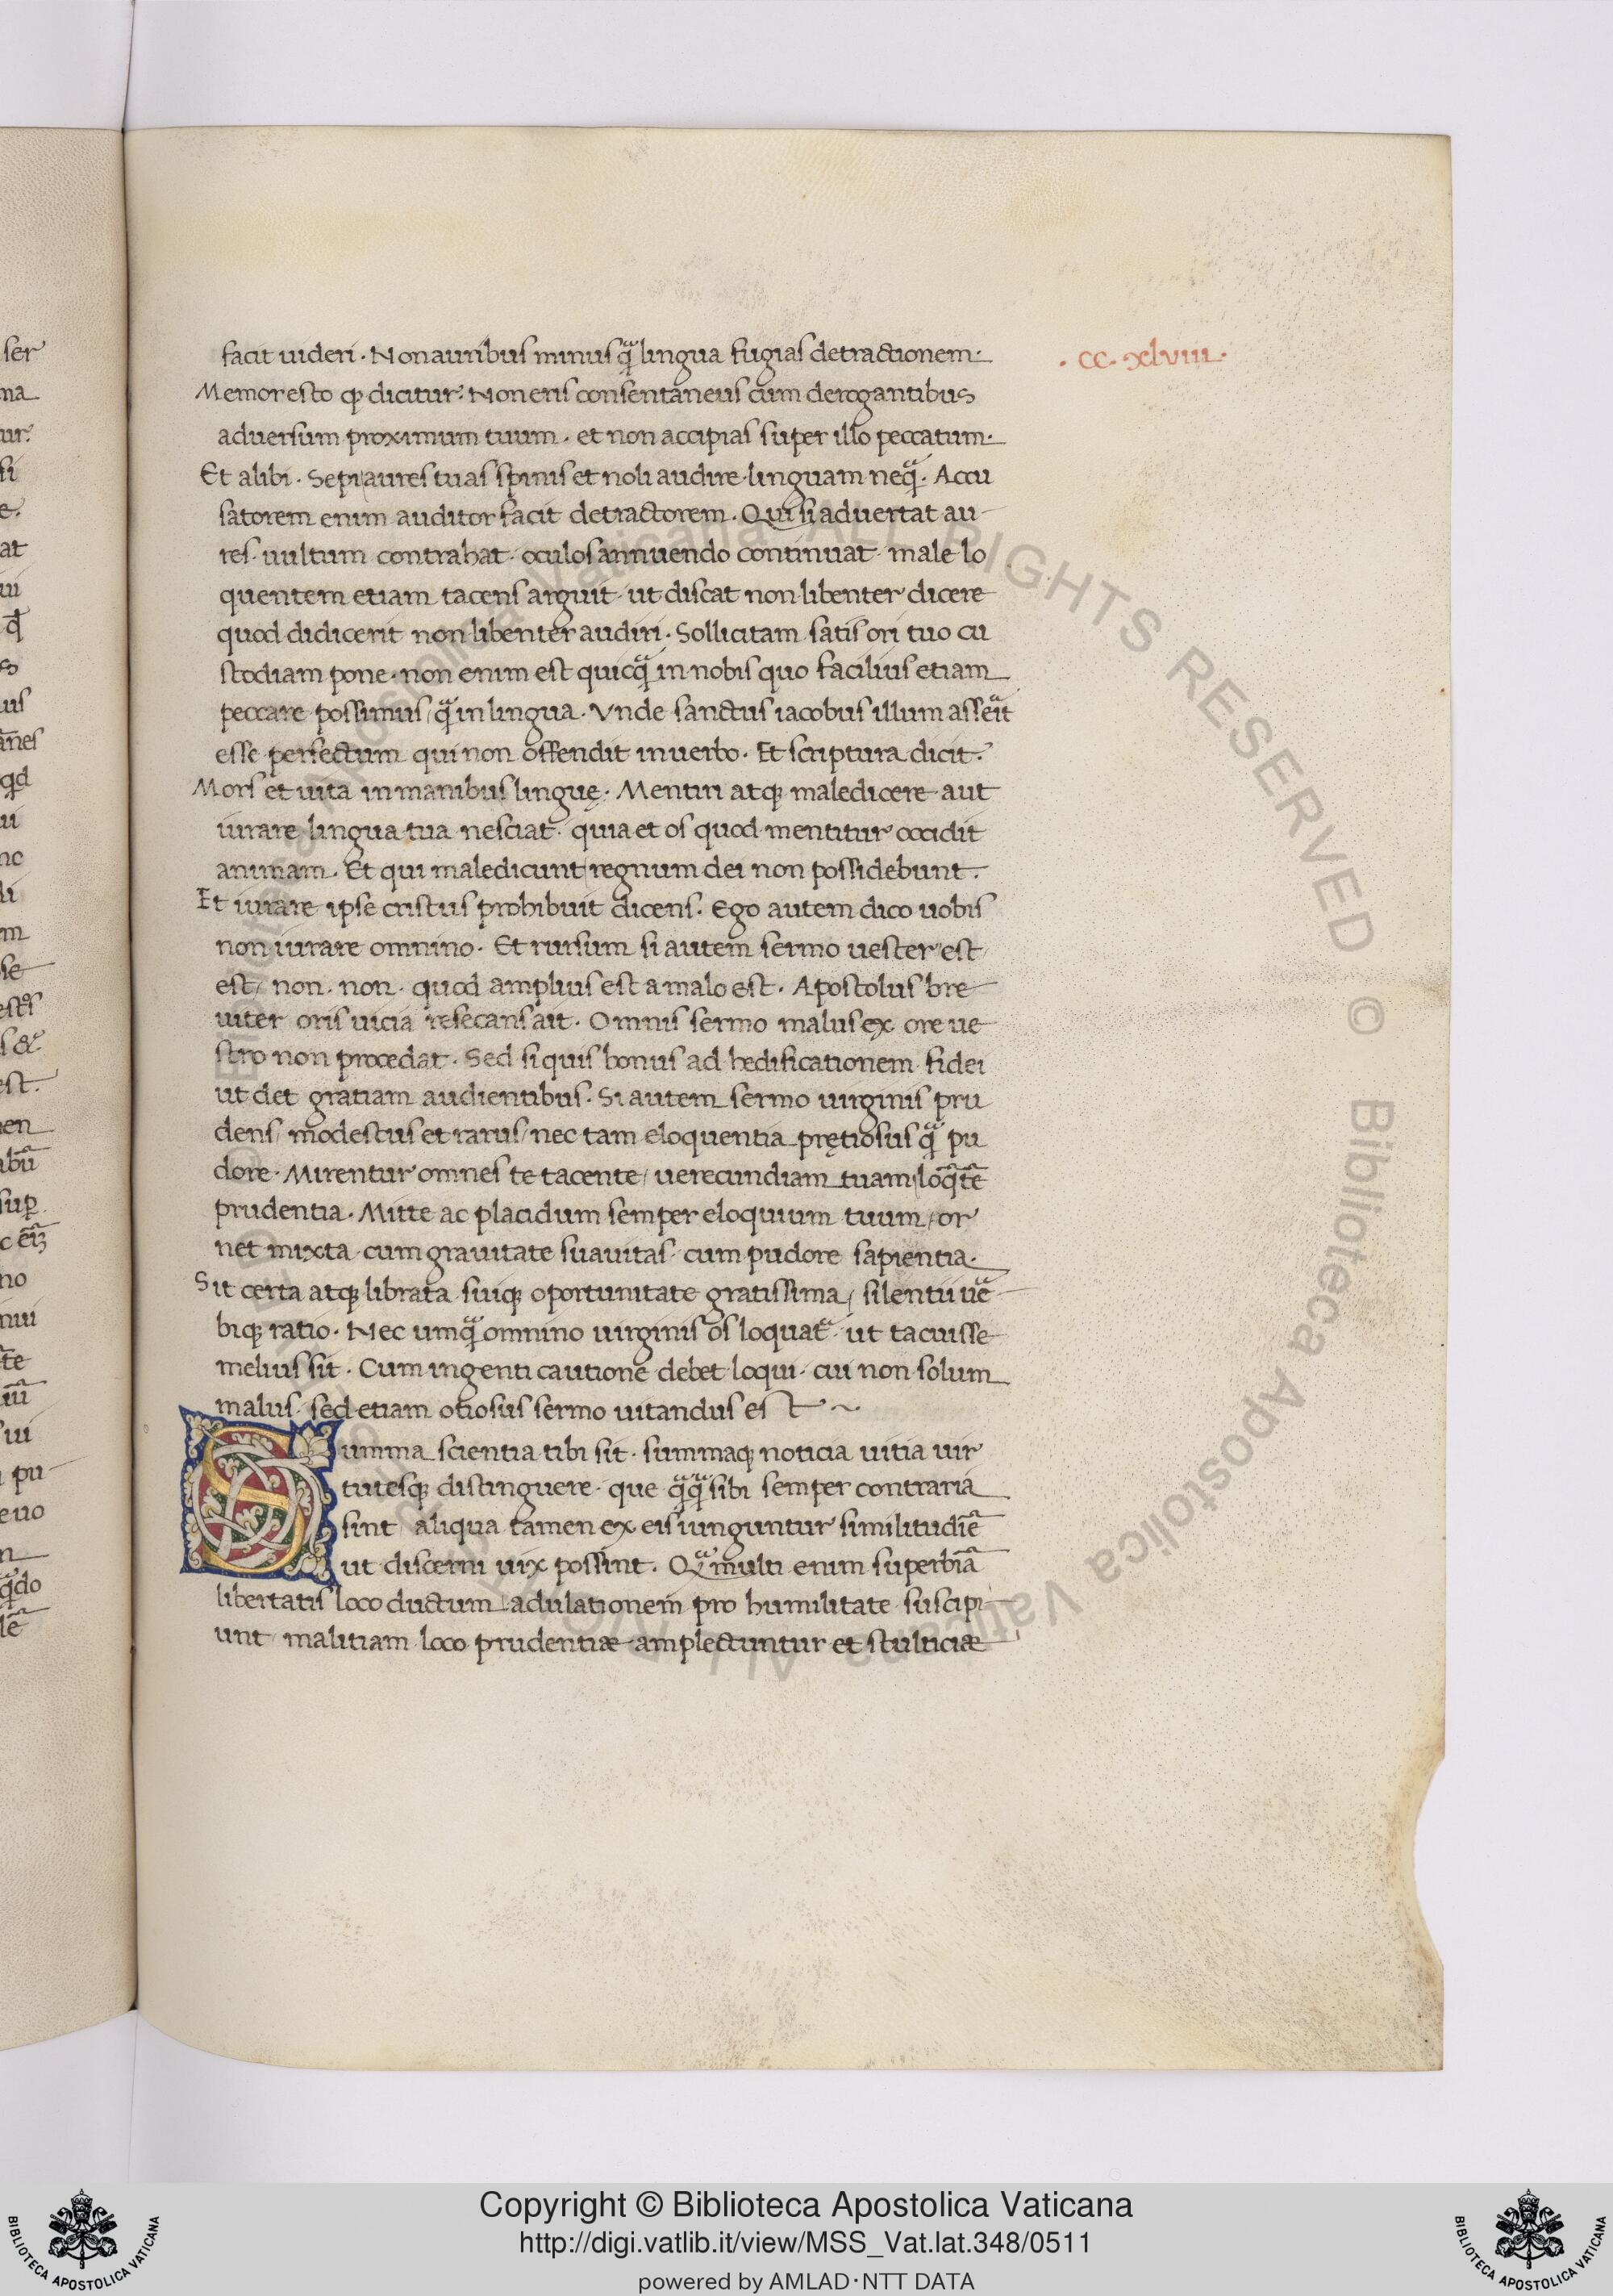 facit uideri. Non auribus minus qᷓ lingua fugias detractionem.
. cc. xlviii.
Memor esto ꝙ dicitur: Non eris consentaneus cum derogantibus
aduersum proximum tuum. et non accipias super illo peccatum.
Et alibi. Sepi aures tuas spinis et noli audire linguam neqᷓ. Accu
satorem enim auditor facit detractorem. Qui si aduertat au
res. uultum contrahat. oculos annuendo continuat. male lo
quentem etiam tacens arguit. ut discat non libenter dicere
quod didicerit non libenter audiri. Sollicitam satis ori tuo cu
stodiam pone. non enim est quicqᷓ in nobis quo facilius etiam
peccare possimus/ qᷓ in lingua. Vnde sanctus iacobus illum asseᷓit
esse perfectum qui non offendit in uerbo. Et scriptura dicit:
Mors et uita in manibus linguę. Mentiri atqꝫ maledicere aut
iurare lingua tua nesciat. quia et os quod mentitur occidit
animam. Et qui maledicunt/ regnum dei non possidebunt.
Et iurare ipse cristus prohibuit dicens. Ego autem dico uobis
non iurare omnino. Et rursum si autem sermo uester est/
est/ non. non. quod amplius est a malo est. Apostolus bre
uiter oris uicia resecans ait. Omnis sermo malus ex ore ue
stro non procedat. Sed si quis bonus ad hedificationem fidei
ut det gratiam audientibus. Si autem sermo uirginis pru
dens/ modestus et rarus/ nec tam eloquentia prętiosus qᷓ pu
dore. Mirentur omnes te tacente/ uerecundiam tuam/ loq̄tē
prudentia. Mitte ac placidum semper eloquium tuum/ or
net mixta cum grauitate suauitas. cum pudore sapientia.
Sit certa atqꝫ librata suiqꝫ oportunitate gratissima/ silentii ueᷓ
biqꝫ ratio. Nec umqᷓ omnino uirginis os loquat᷑. ut tacuisse
melius sit. Cum ingenti cautione debet loqui. cui non solum
malus. sed etiam otiosus sermo uitandus est ~
Summa scientia tibi sit. summaqꝫ noticia uitia uir
tutesqꝫ distinguere. que qᷓqᷓ sibi semper contraria
sint/ aliqua tamen ex eis iunguntur similitudīe
ut discerni uix possint. Qᷓ multi enim superbiā
libertatis loco ductum/ adulationem pro humilitate suscipi
unt/ malitiam loco prudentiæ amplectuntur et stulticiæ
Copyright © Biblioteca Apostolica Vaticana
http://digi.vatlib.it/view/MSS_Vat.lat.348/0511
powered by AMLAD·NTT DATA